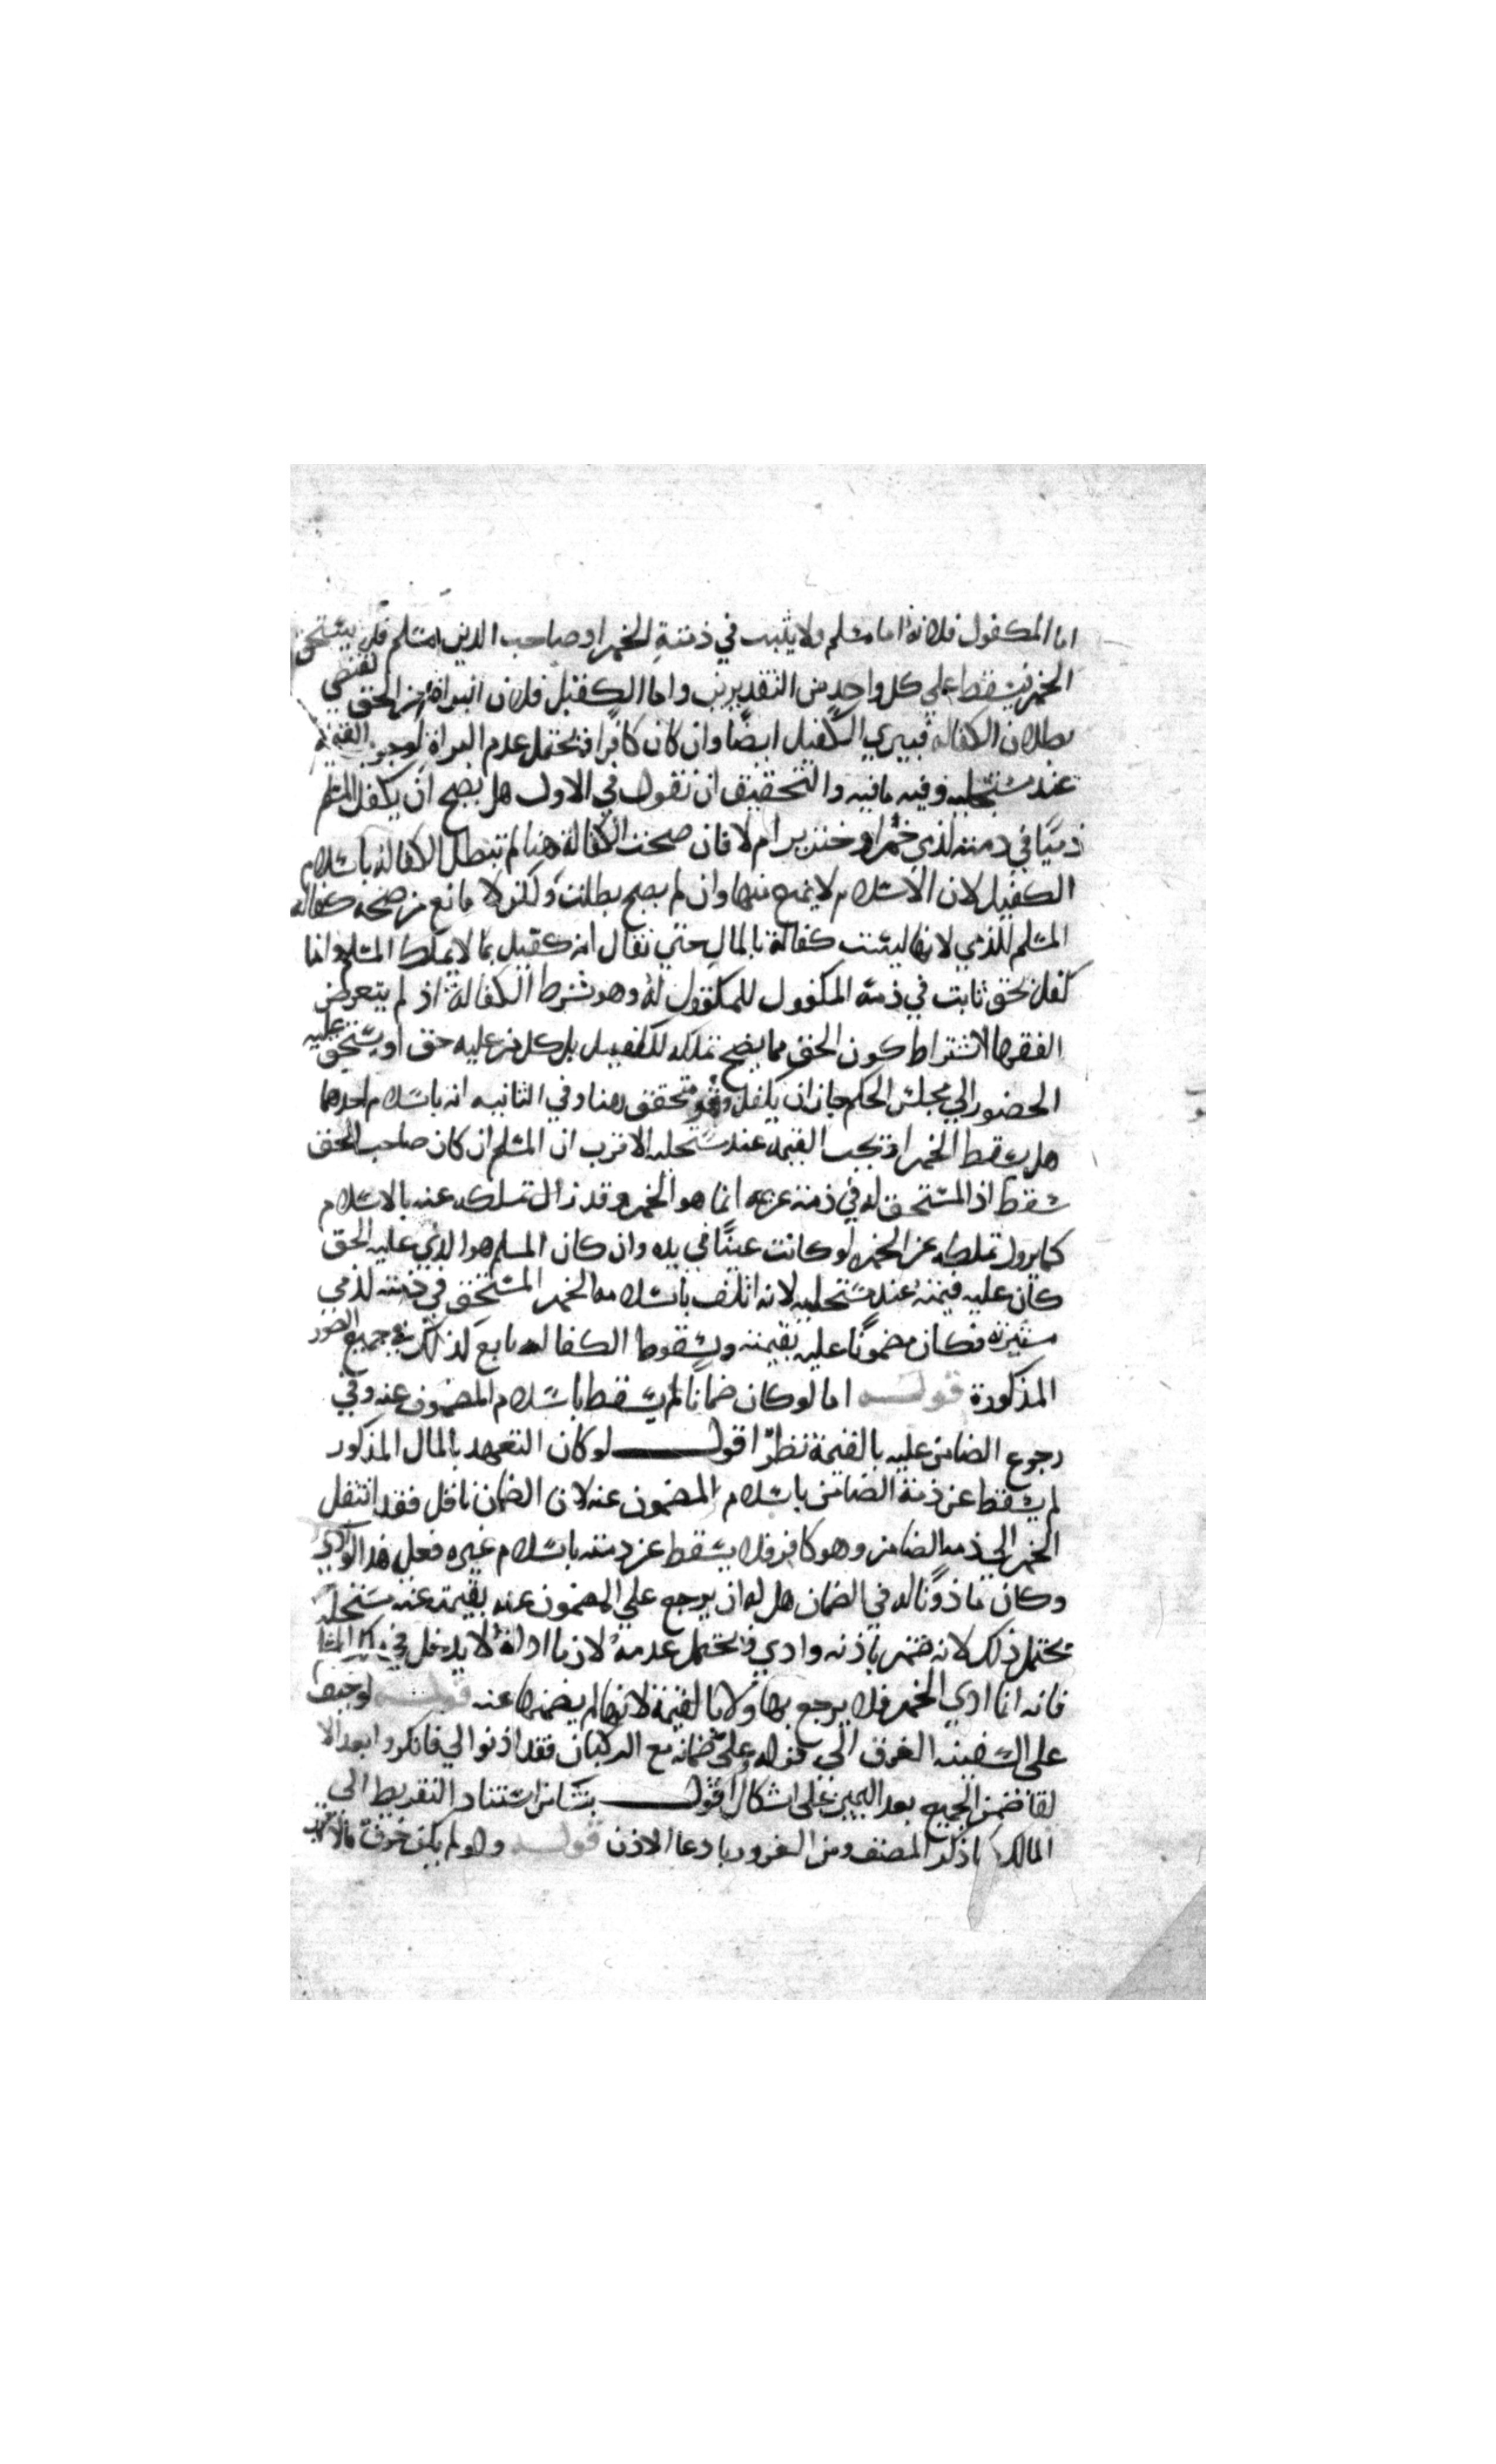 اما المكفول فلانه اما مسلم ولا يثبت في ذمته الخمر او صاحب الدين مسلم فلا يستحق
الخمر فيسقط علي كل واحد من التقديرين واما الكفيل فلان البراة من الحق تقتضي
بطلان الكفاله فيبري الكفيل ايضًا وان كان كافرا فيحتمل عدم البراة لوجوب القيمة
عند مستحليه وفيه ما فيه والتحقيق ان نقول في الاول هل يصح ان يكفل المسلم
ذميًا في ذمته لذمي خمر او خنزير ام لا فان صحت الكفالة هنا لم تبطل الكفالة باسلام
الكفيل لان الاسلام لا يمنع منها وان لم يصح بطلت ولكن لا مانع من صحة كفالة
المسلم للذمي لانها ليست كفالة بالمال حتي نقال انه كفيل بما لا يملك المسلم وانما
كفل بحق ثابت في ذمة المكفول للمكفول له وهو شرط الكفالة اذ لم يتعرض
الفقها لاشتراط كون الحق مما يصح تملكه للكفيل بل كل من عليه حق او يستحق عليه
الحضور الي مجلس الحكم جاز ان يكفل وهو متحقق هنا وفي الثانيه انه باسلام احدهما
هل يسقط الخمر او تجب القيمة عند مستحليه الاقرب ان المسلم ان كان صاحب الحق
سقط اذ المستحق له في ذمة غريمه انما هو الخمر وقد زال تملكه عنه بالاسلام
كما يزول تملكه عن الخمر لو كانت عينًا في يده وان كان المسلم هو الذي عليه الحق
كان عليه قيمته عند مستحليه لانه اتلف باسلامه الخمر المستحق في ذمته لذمي
مستتر به فكان مضمونًا عليه بقيمته وسقوط الكفاله تابع لذلك في جميع الصور
المذكورة قوله اما لو كان ضمانا لم يسقط باسلام المضمون عنه وفي
رجوع الضامن عليه بالقيمة نظر اقول لو كان التعهد بالمال المذكور
لم يسقط عن ذمة الضامن باسلام المضمون عنه لان الضمان ناقل فقد انتقل
الخمر الي ذمه الضامن وهو كافر فلا يسقط عن ذمته باسلام غيره فعلي هذا لو ادي
وكان ماذونًا له في الضمان هل له ان يرجع علي المضمون عنه بقيمته عند مستحليه
يحتمل ذلك لانه ضمن باذنه وادي فيحتمل عدمه لان ما اداه لا يدخل في ملك المسلم
فانه انما ادي الخمر فلا يرجع بها ولا بالقيمة لانه لم يضمنها عنه قوله لو خيف
علي السفينه الغرق الي قوله وعلي ضمانه مع الركبان فقد اذنوا لي فانكروا بعد الا
لقا ضمن الجميع بعد اليمين علي اشكال اقول ينشا من استناد التفريط الي
المالك ما ذكر المصنف ومن الغرور بادعا الاذن قوله ولو لم يكن خوف فالاقرب